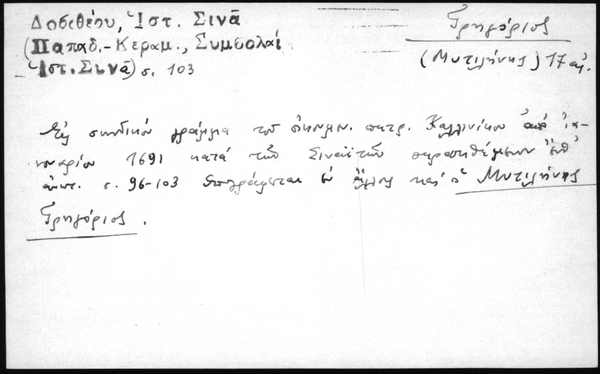 Δοσιθέου, Ἱστ. Σινᾶ
(Παπαδ.-Κεραμ., Συμβολαί
Ἱστ. Σινᾶ) σ. 103
Γρηγόριος
(Μυτιλήνης) 17 αἰ.
Εἰς συνοδικόν γράμμα τοῦ οἰκουμ. πατρ. Καλλινίκου ἀπό ἰα-
νουαρίου 1691 κατά τῶν Σιναϊτῶν παρατιθέμενον
σ. 96-103 ὑπογράφεται καί ὁ Μυτιλήνης
Γρηγόριος.